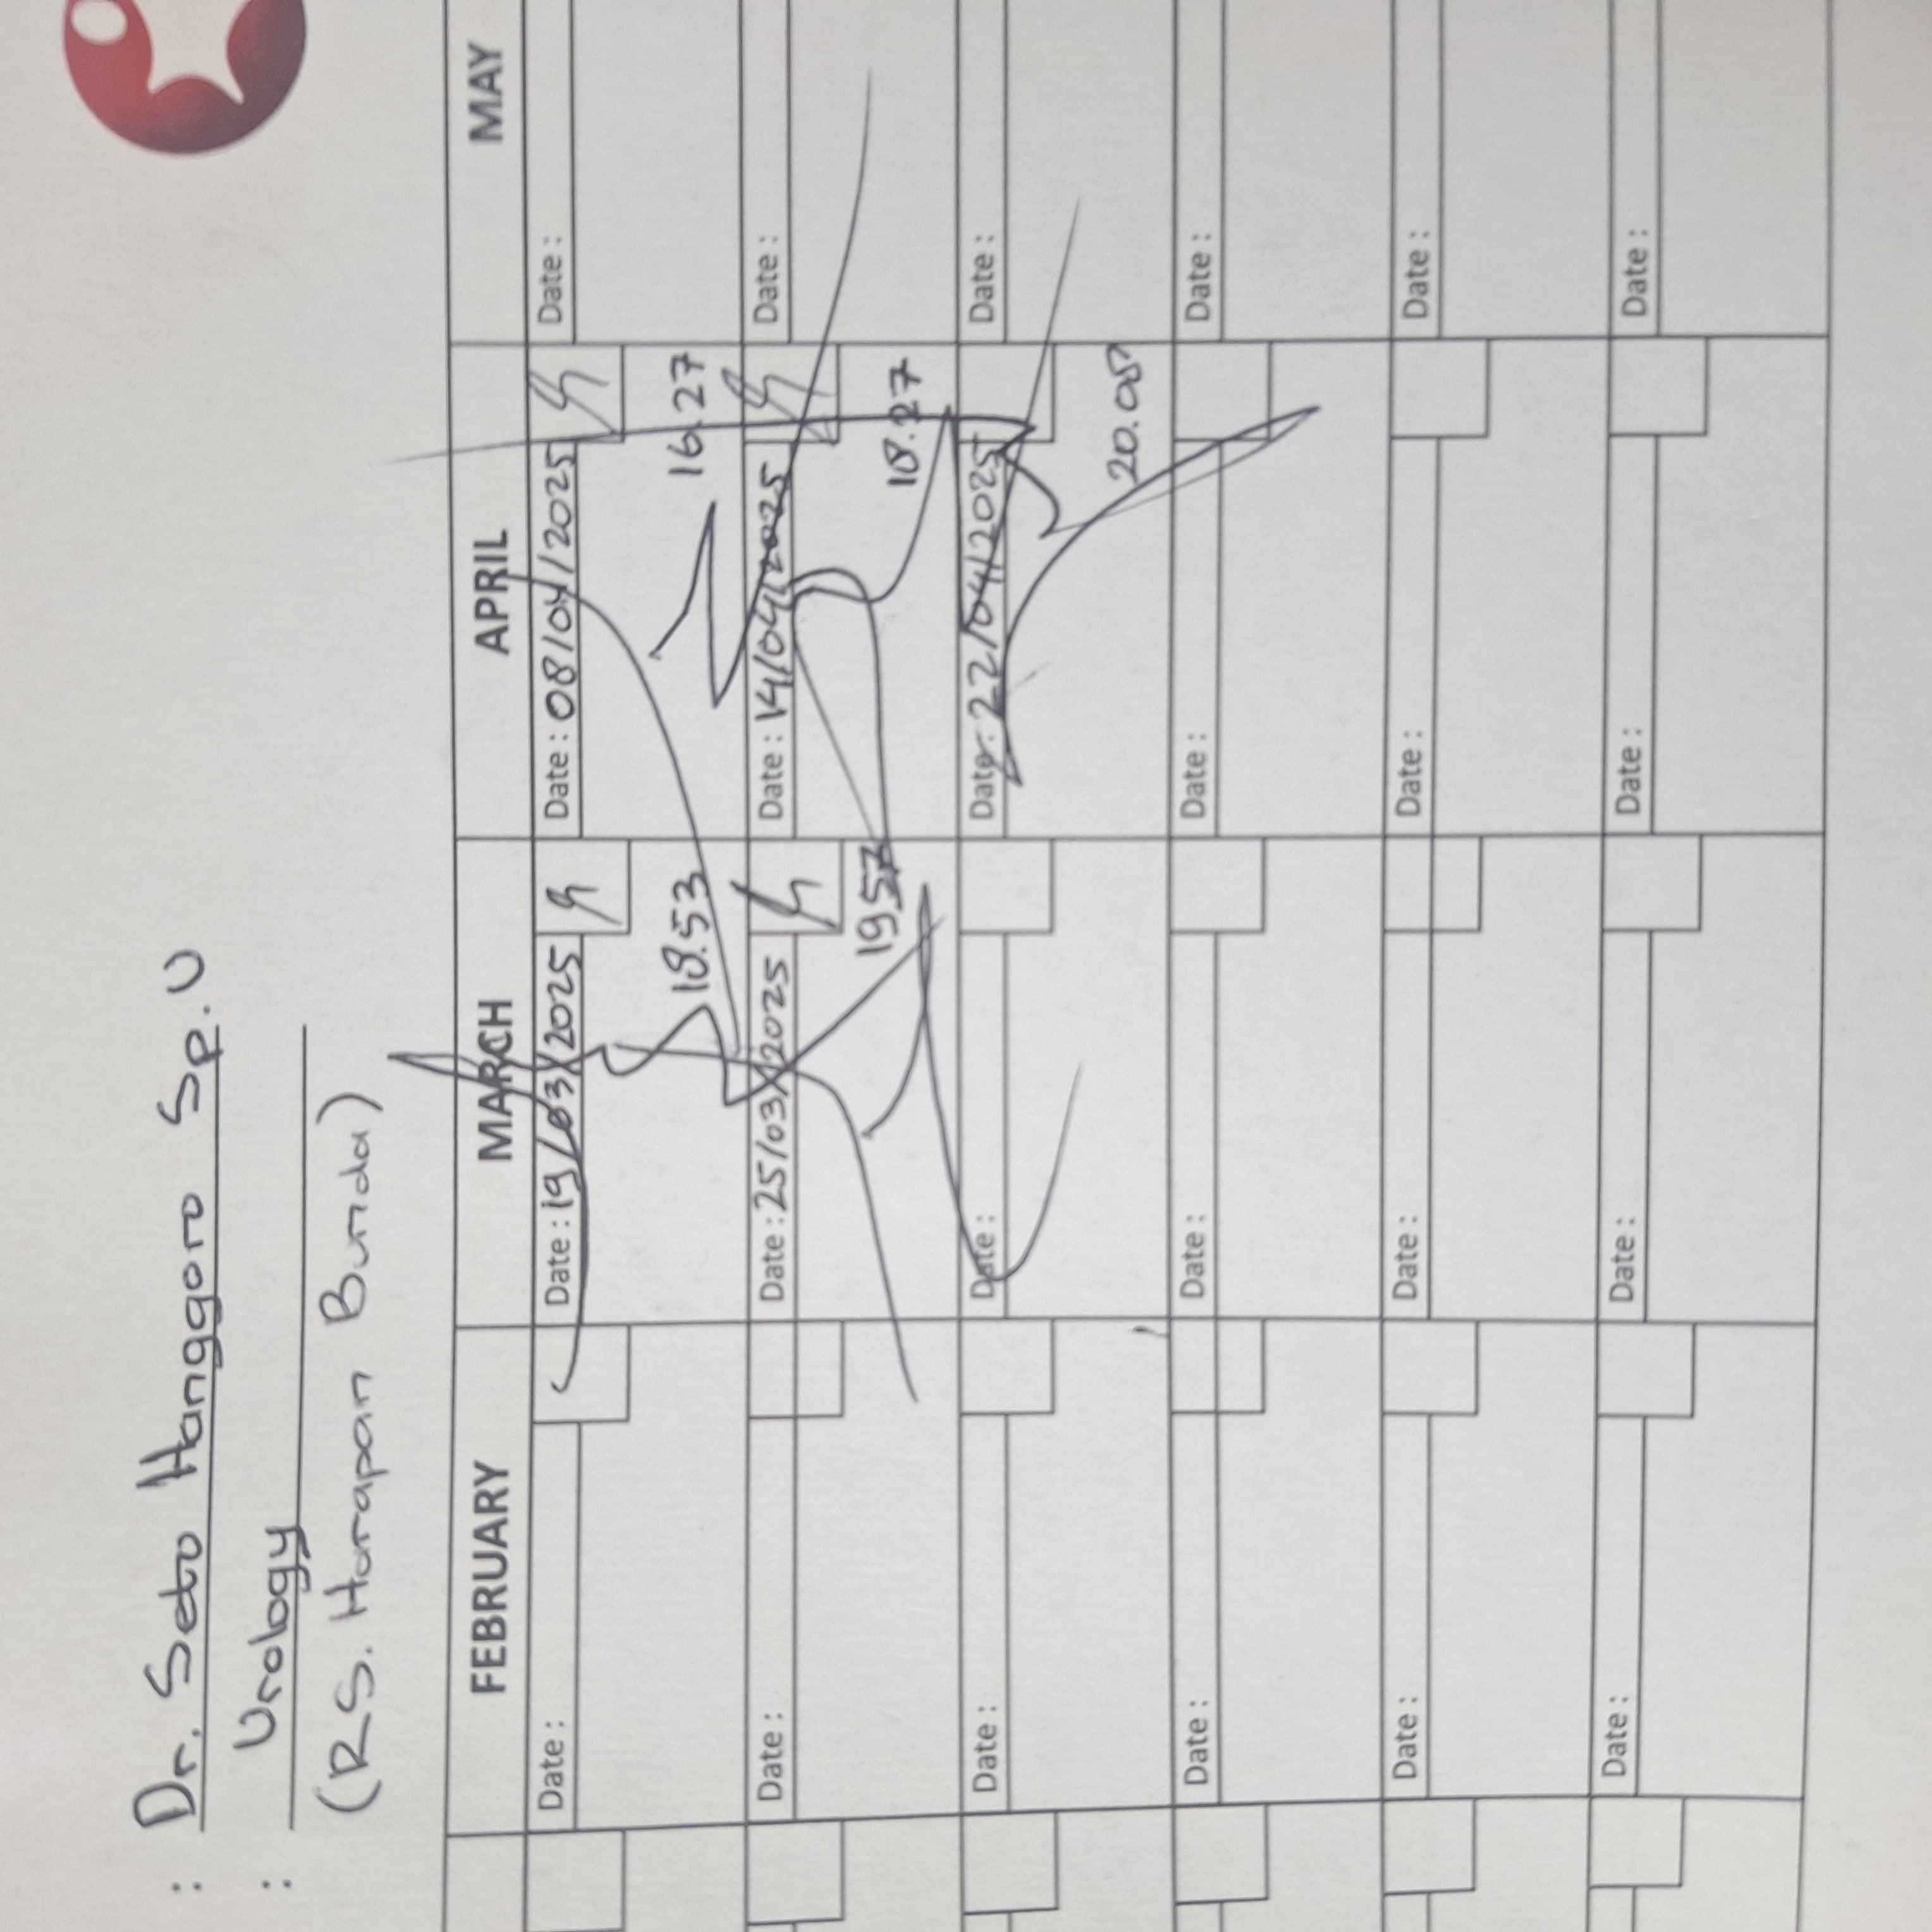 : Dr. Seto Hanggoro Sp.U
: Urology
(RS. Harapan Bunda)
FEBRUARY MARCH APRIL MAY
Date : Date : 19/03/2025 Date : 08/04/2025 Date :
18.53 16.27
Date : Date : 25/03/2025 Date : 14/04/2025 Date :
19.57 18.27
Date : Date : Date : 22/04/2025 Date :
20.08
Date : Date : Date : Date :
Date : Date : Date : Date :
Date : Date : Date : Date :